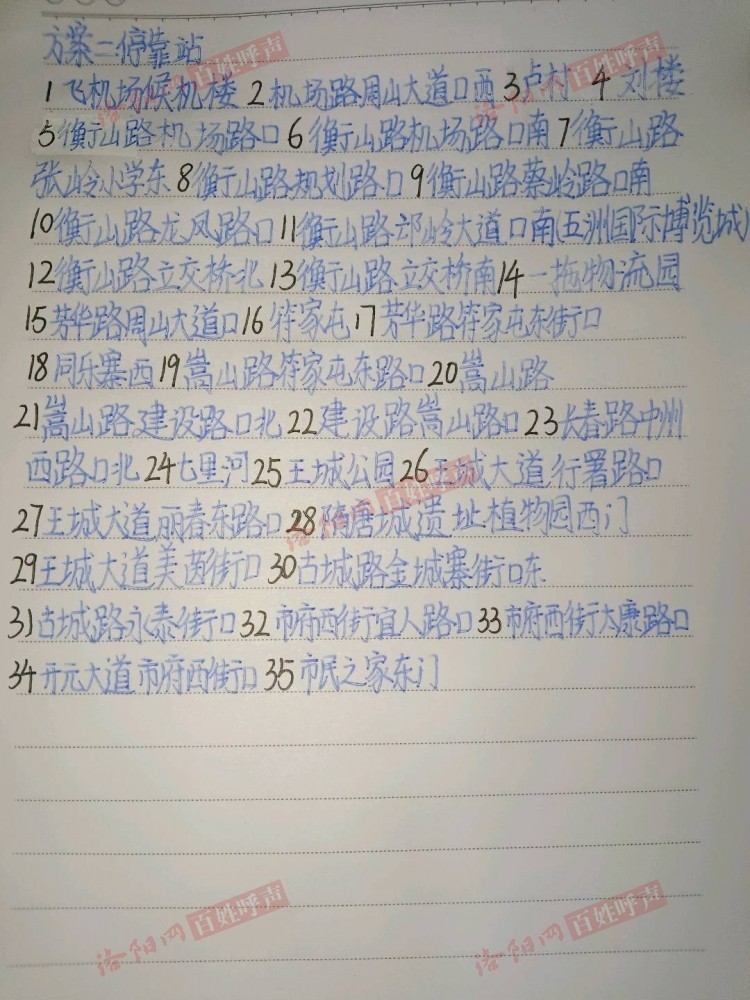 方案二停靠站
1飞机场候机楼 2机场路周山大道口西 3卢村 4刘楼
5衡山路机场路口 6衡山路机场路口南 7衡山路
张岭小学东 8衡山路规划路口 9衡山路蔡岭路口南
10衡山路龙凤路口 11衡山路邙岭大道口南(五洲国际博览城)
12衡山路立交桥北 13衡山路立交桥南 14一拖物流园
15芳华路周山大道口 16符家屯 17芳华路符家屯东街口
18同乐寨西 19嵩山路符家屯东路口 20嵩山路
21嵩山路建设路口北 22建设路嵩山路口 23长春路中州
西路口北 24七里河 25王城公园 26王城大道行署路口
27王城大道丽春东路口 28隋唐城遗址植物园西门
29王城大道美茵街口 30古城路金城寨街口东
31古城路永泰街口 32市府西街宜人路口 33市府西街太康路口
34开元大道市府西街口 35市民之家东门
洛阳网 百姓呼声